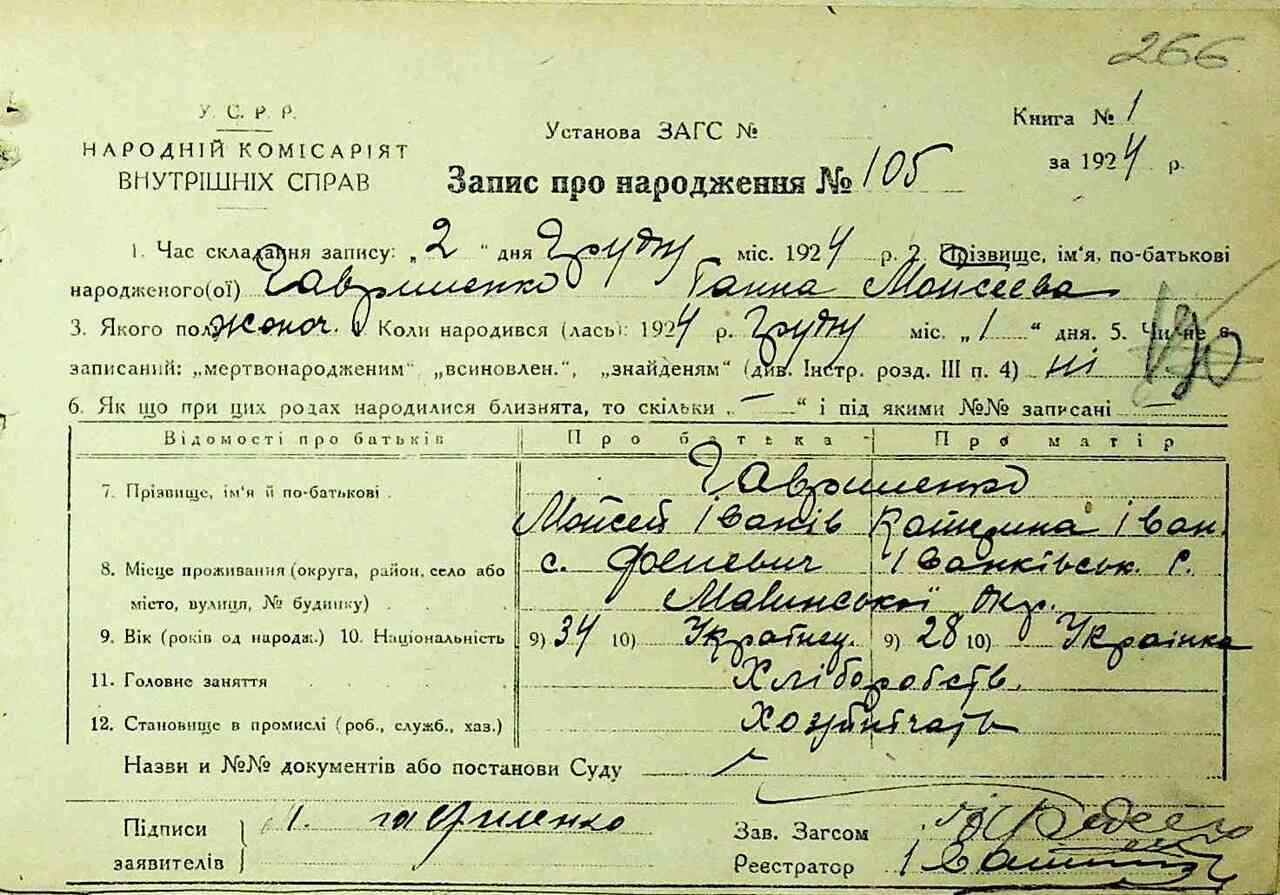 266
У. С. Р. Р.
НАРОДНІЙ КОМІСАРІЯТ
ВНУТРІШНІХ СПРАВ
Установа ЗАГС №
Книга № 1
за 1924 р.
Запис про народження № 105
1. Час складання запису: „2“ дня Грудня міс. 1924 р. 2. Прізвище, ім'я, по-батькові
народженого(ої) Гавриленко Ганна Моисеева
3. Якого пол жоноч. Коли народився (лась): 1924 р. грудня міс. „1“ дня. 5. Чи не є
записаний: „мертвонародженим“ „всиновлен.“, „знайденям“ (див. Інстр. розд. III п. 4) ні
6. Як що при цих родах народилися близнята, то скільки „—“ і під якими №№ записані
Відомості про батьків Про батька Про матір
7. Прізвище, ім'я й по-батькові Гавриленко
Мойсей Іванів Катерина Іван.
8. Місце проживання (округа, район, село або с. Феневич Іванківськ. р.
місто, вулиця, № будинку) Малинської окр.
9. Вік (років од народж.) 10. Національність 9) 34 10) Українец. 9) 28 10) Українка
11. Головне заняття Хліборобств.
12. Становище в промислі (роб., служб., хаз.)
Назви и №№ документів або постанови Суду
Підписи
заявителів
1. гавриленко
Зав. Загсом
Реєстратор